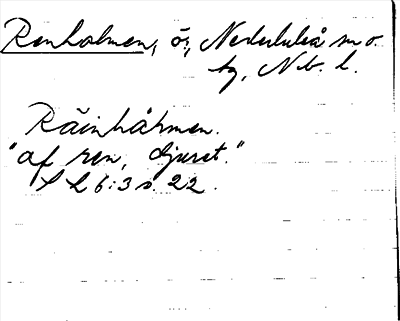 Renholmen, ö, Nederluleå sn o.
tg, Nb. l.
Räinhårmen.
"af ren, djuret."
S L 6:3 s. 22.